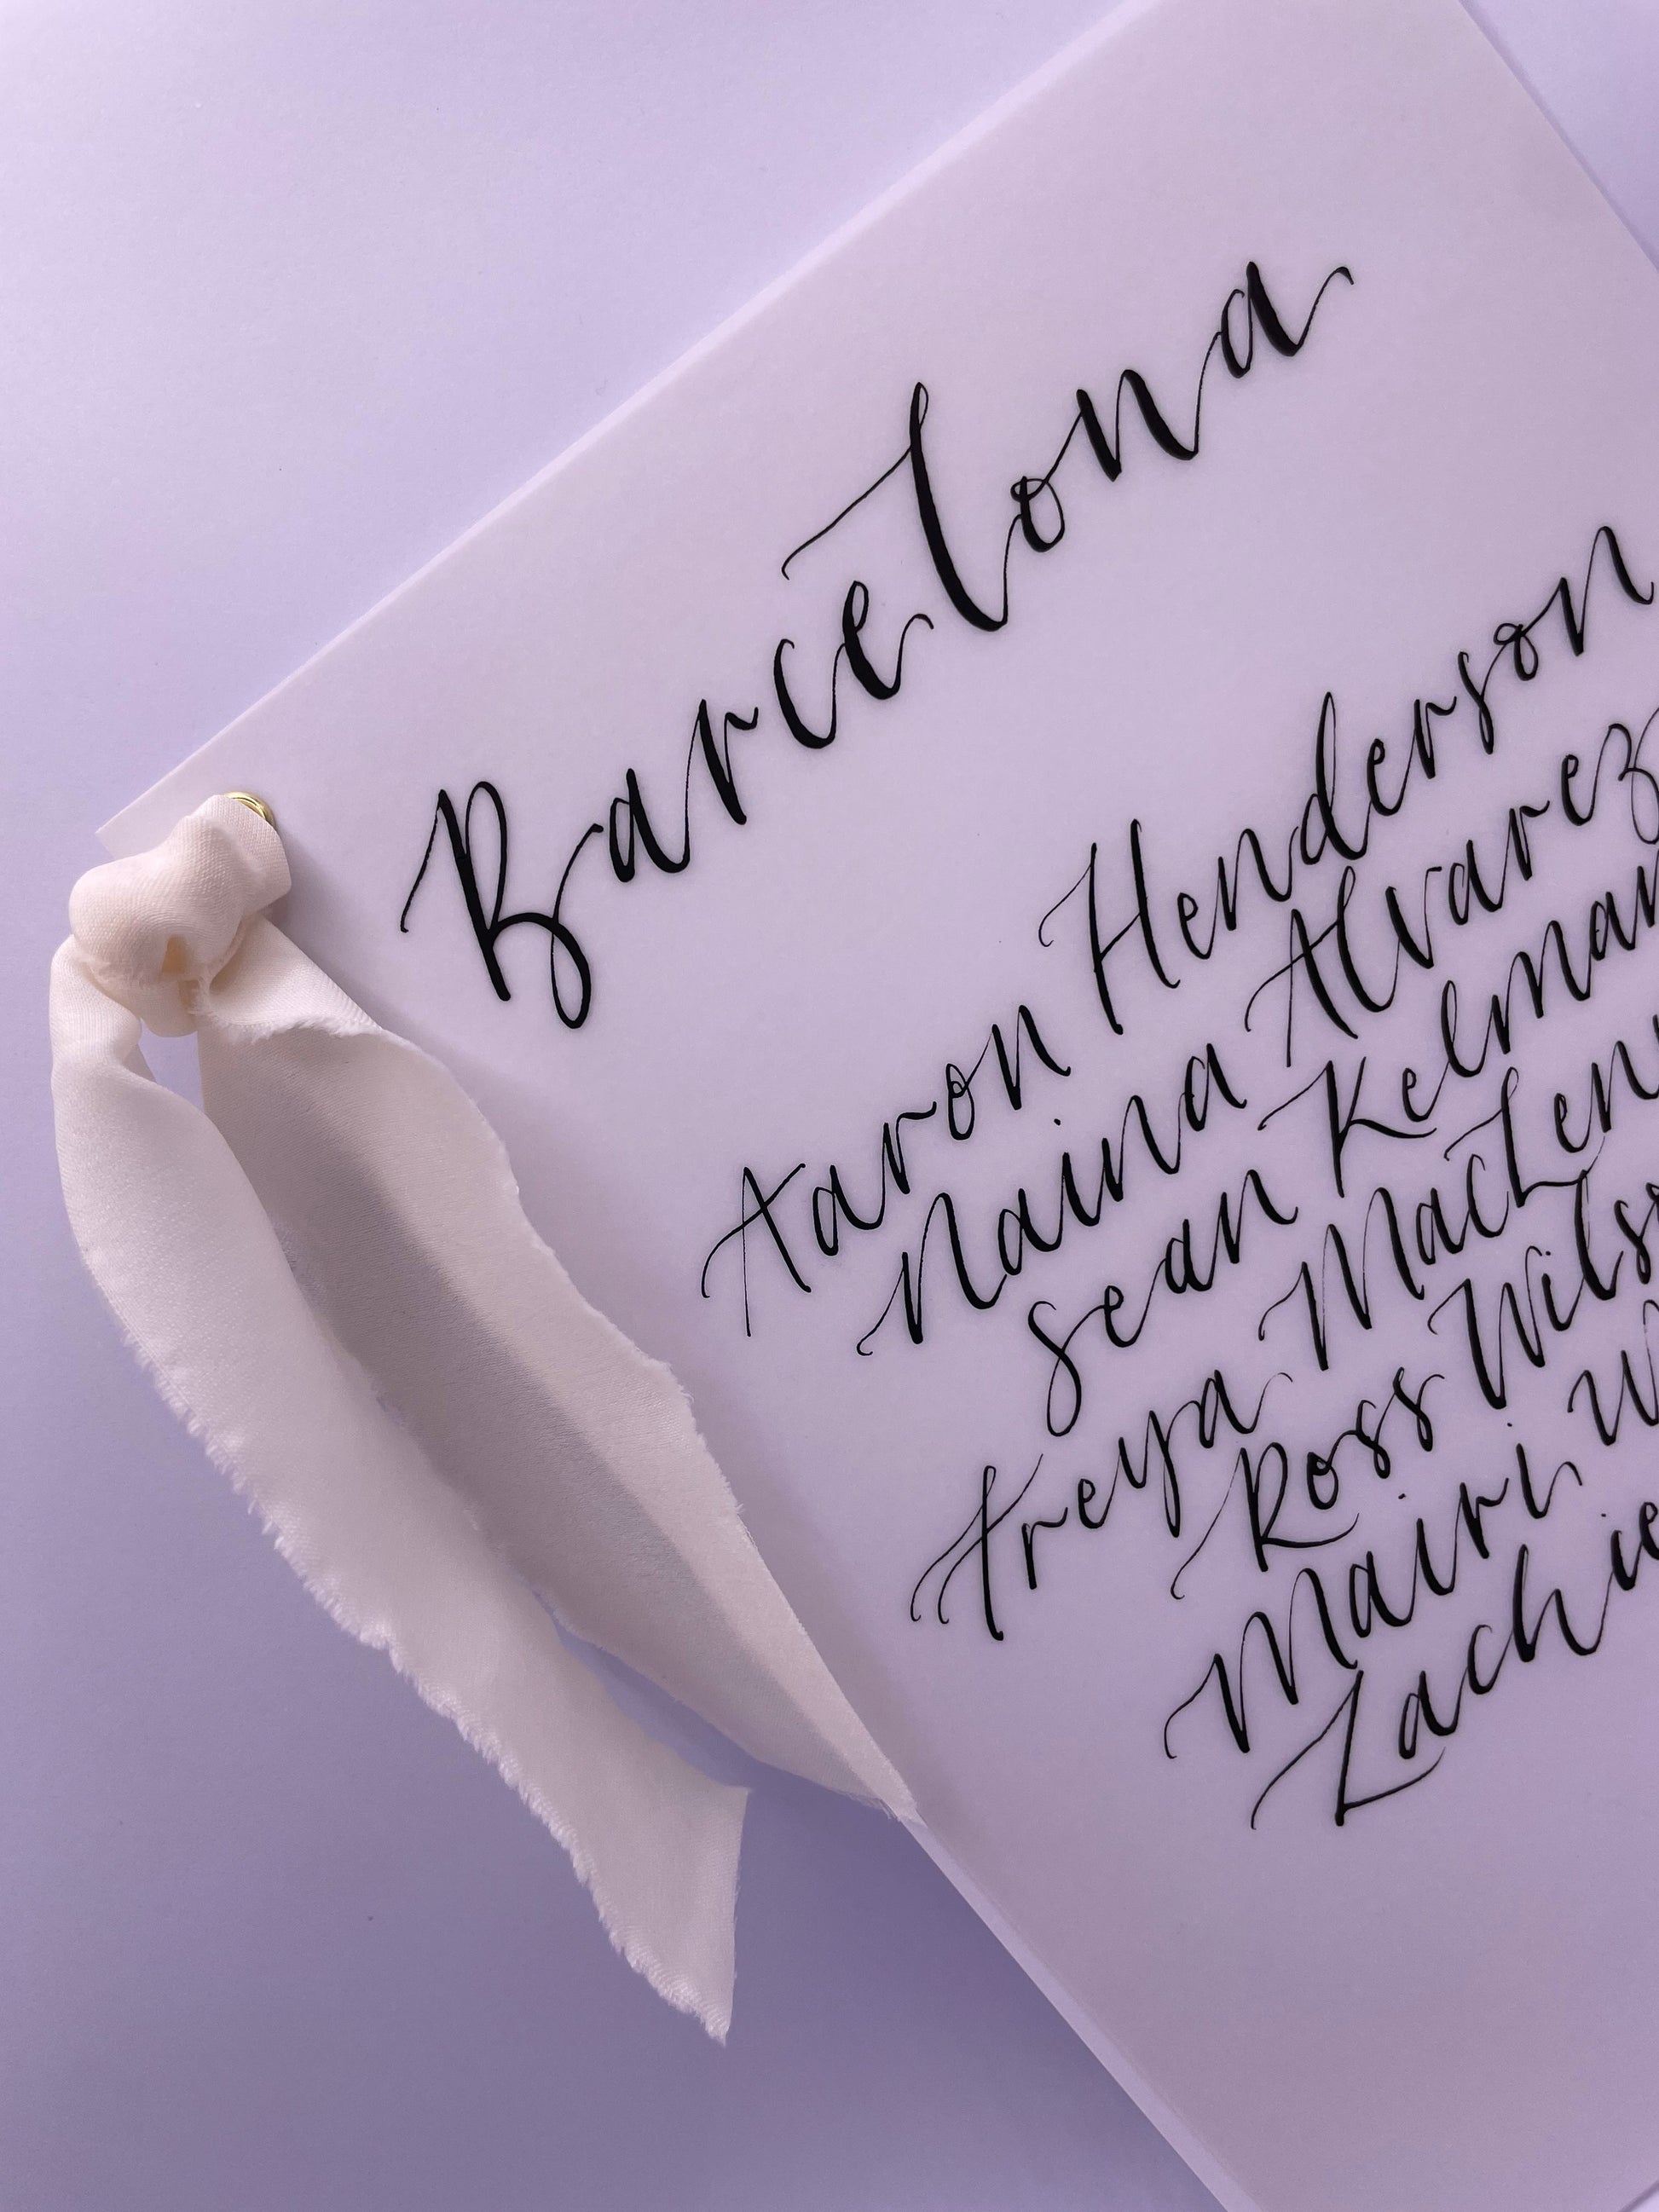 Barcelona
Aaron Henderson
Naina Alvarez
Sean Kelman
Freya MacLen
Ross Wils
Mairi W
Zachie